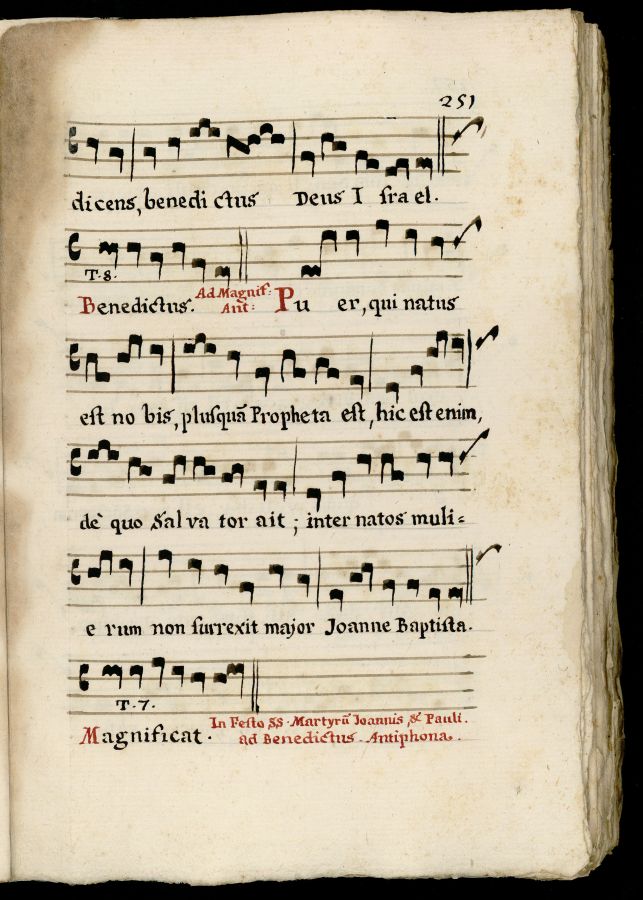 251
dicens, benedi ctus Deus I srael.
T. 8.
Benedictus. Ad Magnif: Pu er, qui natus
Ant:
est no bis, plusquā Propheta est, hic est enim,
dè quo Sal va tor ait; inter natos muli=
e rum non surrexit major Joanne Baptista.
T. 7.
In Festo SS. Martyrū Joannis, & Pauli.
Magnificat. ad Benedictus Antiphona.